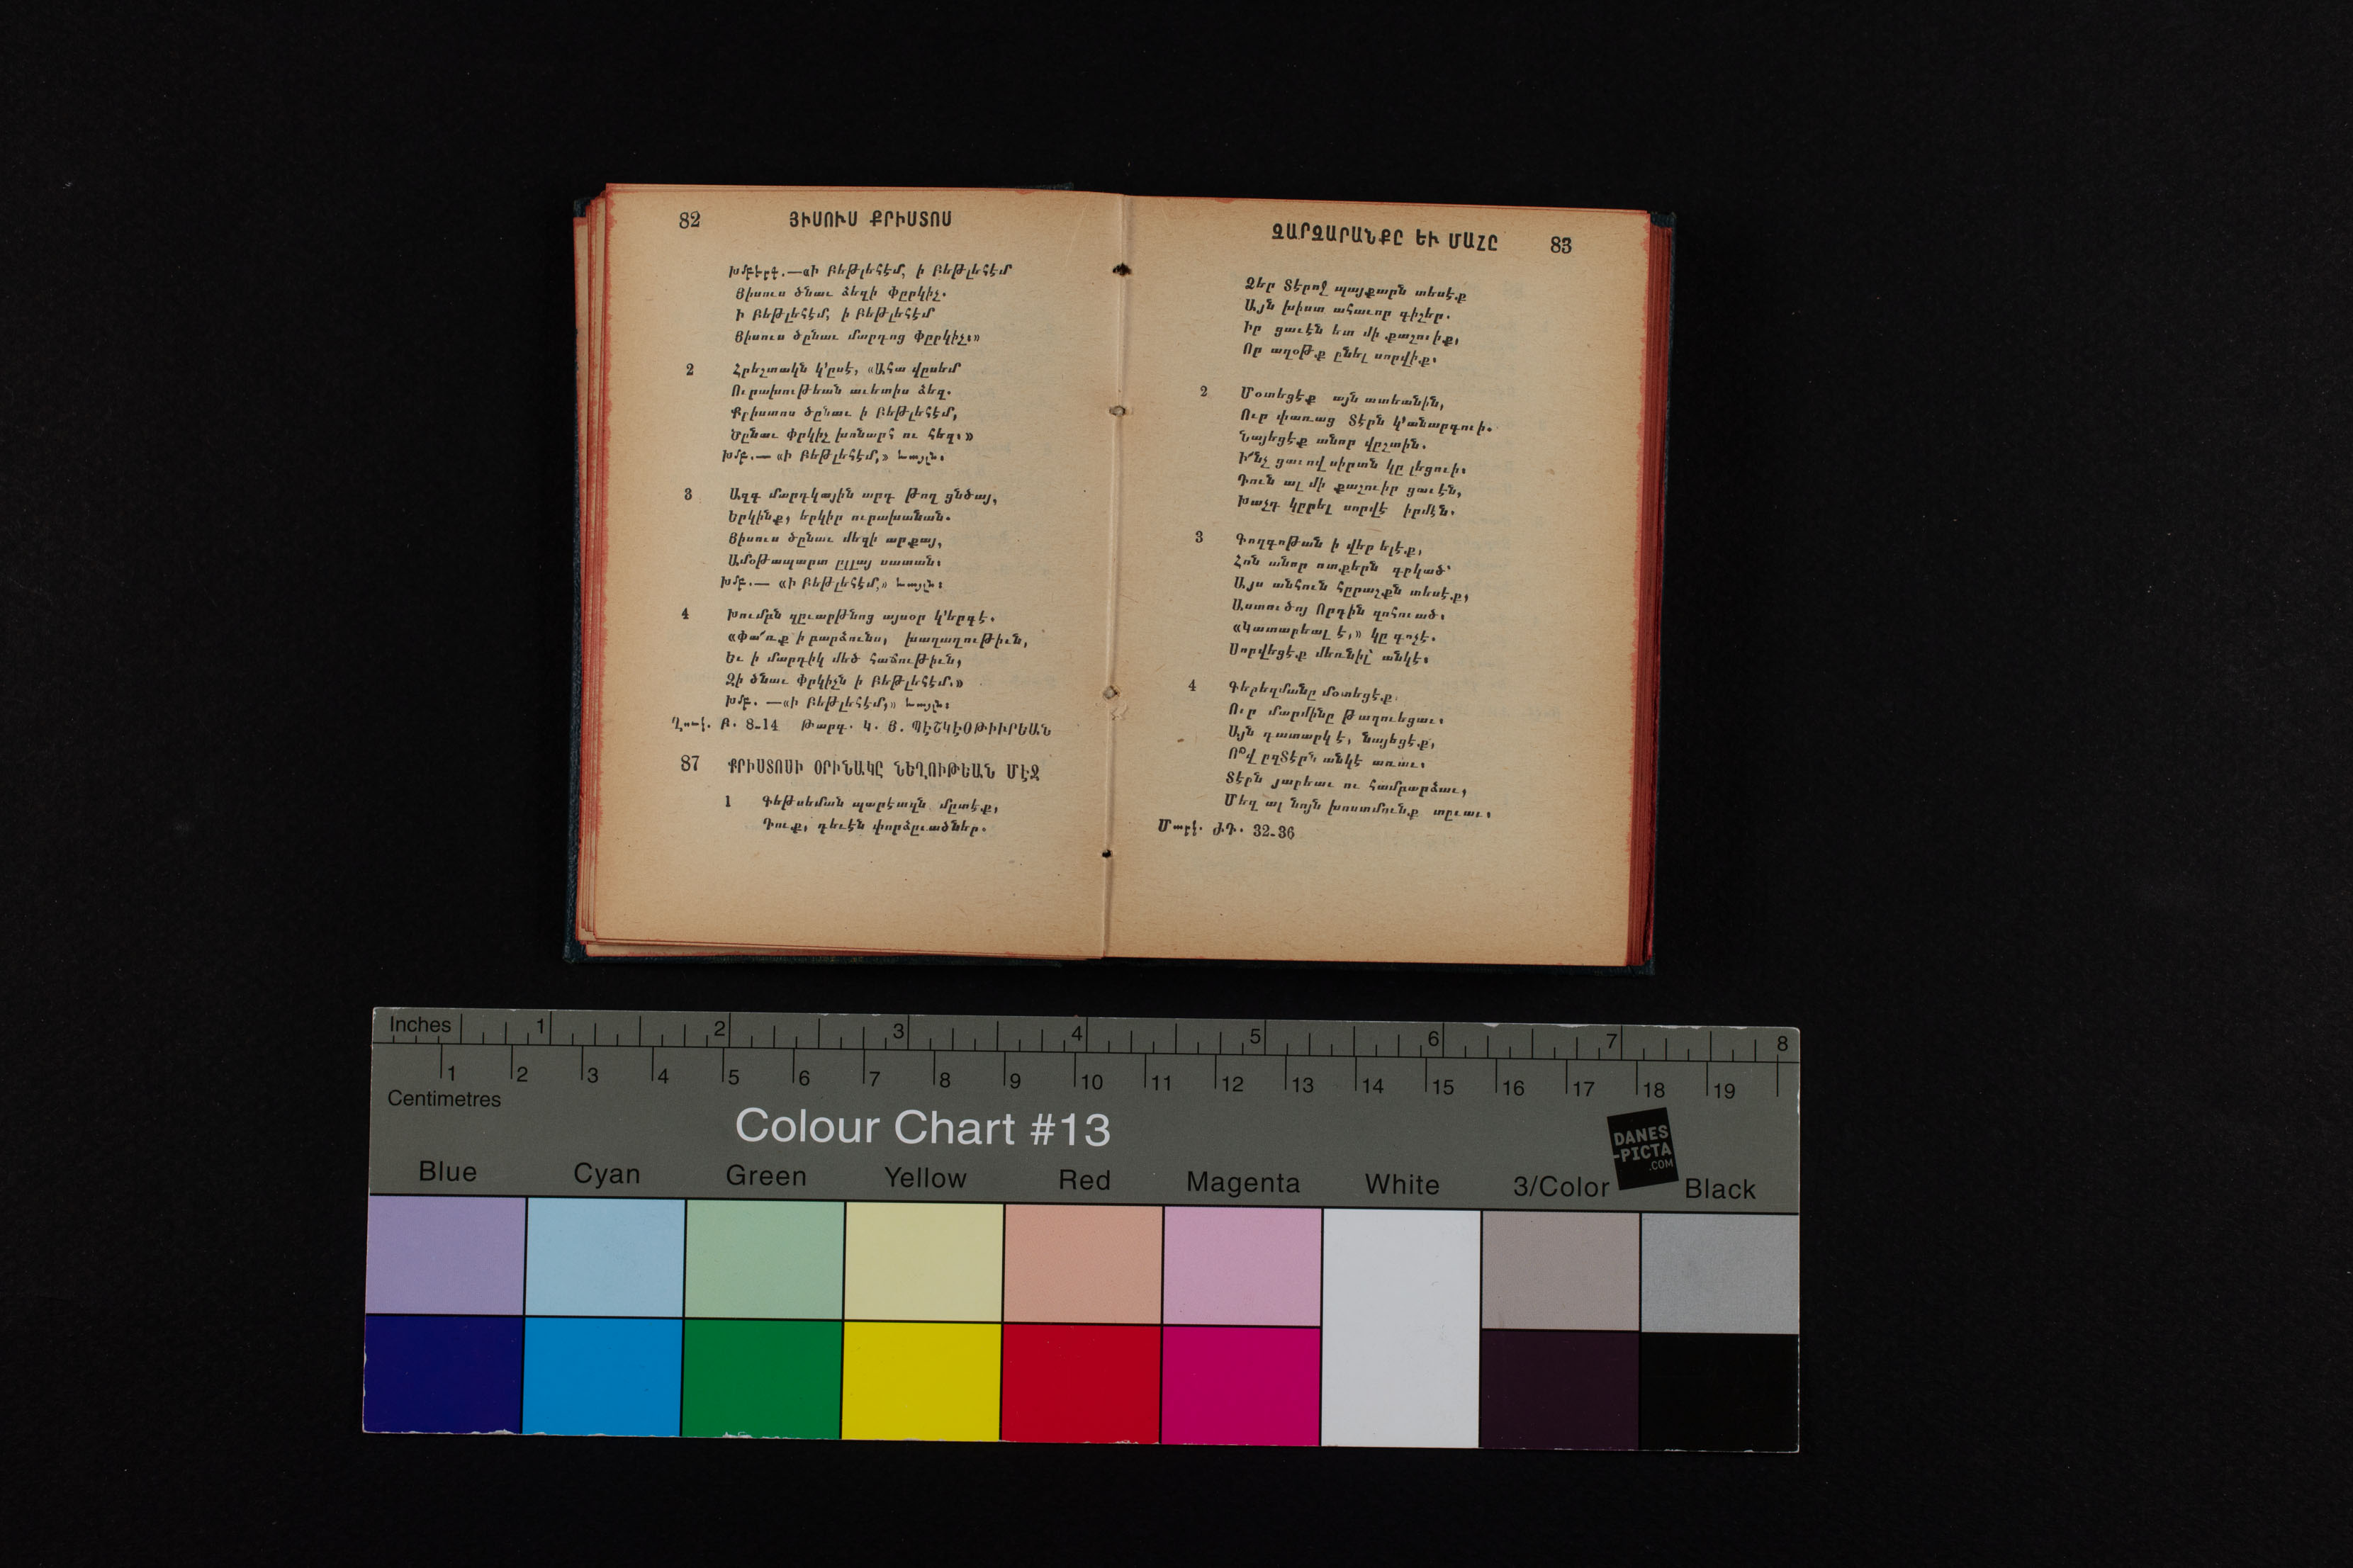 82 ՅԻՍՈՒՍ ՔՐԻՍՏՈՍ
Խմբերգ.—«Ի Բեթլեհէմ, ի Բեթլեհէմ
Յիսուս ծնաւ ձեզի Փըրկիչ.
Ի Բեթլեհէմ, ի Բեթլեհէմ
Յիսուս ծընաւ մարդոց Փըրկիչ։»
2 Հրեշտակն կ՚ըսէ, «Ահա վըսեմ
Ուրախութեան աւետիս ձեզ.
Քրիստոս ծընաւ ի Բեթլեհէմ,
Ծընաւ Փրկիչ խոնարհ ու հեզ։»
Խմբ.— «Ի Բեթլեհէմ,» եայլն։
3 Ազգ մարդկային արդ թող ցնծայ,
Երկինք, երկիր ուրախանան.
Յիսուս ծընաւ մեզի արքայ,
Ամօթապարտ ըլլայ սատան։
Խմբ.— «Ի Բեթլեհէմ,» եայլն։
4 Խումբն զըւարթնոց այսօր կ՚երգէ.
«Փա՜ռք ի բարձունս, խաղաղութիւն,
Եւ ի մարդիկ մեծ հաճութիւն,
Զի ծնաւ Փրկիչն ի Բեթլեհէմ.»
Խմբ. —«Ի Բեթլեհէմ,» եայլն։
Ղուկ. Բ. 8-14 Թարգ. Կ. Յ. ՊԷՇԿԷՕԹԻՒՐԵԱՆ
87 ՔՐԻՍՏՈՍԻ ՕՐԻՆԱԿԸ ՆԵՂՈՒԹԵԱՆ ՄԷՋ
1 Գեթսեման պարէտզն մըտէք,
Դուք, դեւէն փորձըւածներ.
ՉԱՐՉԱՐԱՆՔԸ ԵՒ ՄԱՀԸ 83
Ձեր Տէրոջ պայքարն տեսէք
Այն խիստ ահաւոր գիշեր.
Իր ցաւէն ետ մի քաշուիք,
Որ աղօթք ընել սորվիք.
2 Մօտեցէք այն ատեանին,
Ուր փառաց Տէրն կ՚անարգուի.
Նայեցէք անոր վըշտին.
Ի՜նչ ցաւով սիրտն կը լեցուի.
Դուն ալ մի քաշուիր ցաւէն,
Խաչդ կըրել սորվէ իրմէն.
3 Գողգոթան ի վեր ելէք,
Հոն անոր ոտքերն գրկած՝
Այս անհուն հըրաշքն տեսէք,
Աստուծոյ Որդին զոհուած.
«Կատարեալ է,» կը գոչէ.
Սորվեցէք մեռնիլ՝ անկէ։
4 Գերեզմանը մօտեցէք
Ուր մարմինը թաղուեցաւ.
Այն դատարկ է, նայեցէք,
Ո՞վ ըզՏէրն անկէ առաւ.
Տէրն յարեաւ ու համբարձաւ,
Մեզ ալ նոյն խոստմունք տըւաւ.
Մարկ. ԺԴ. 32-36
Inches 1 2 3 4 5 6 7 8
1 2 3 4 5 6 7 8 9 10 11 12 13 14 15 16 17 18 19
Centimetres
Colour Chart #13
DANES
-PICTA
.COM
Blue Cyan Green Yellow Red Magenta White 3/Color Black